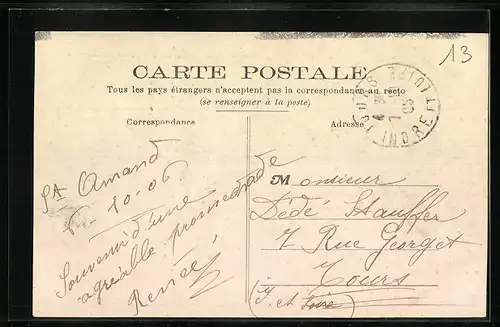 13
CARTE POSTALE
Tous les pays étrangers n'acceptent pas la correspondance au recto
(se renseigner à la poste)
Correspondance
Adresse
INDRE ET LOIRE
St Amand
10-06
Souvenir d'une
agréable promenade
Renée
Monsieur
Dédé Stauffer
7 Rue Georget
Tours
(I. et Loire)